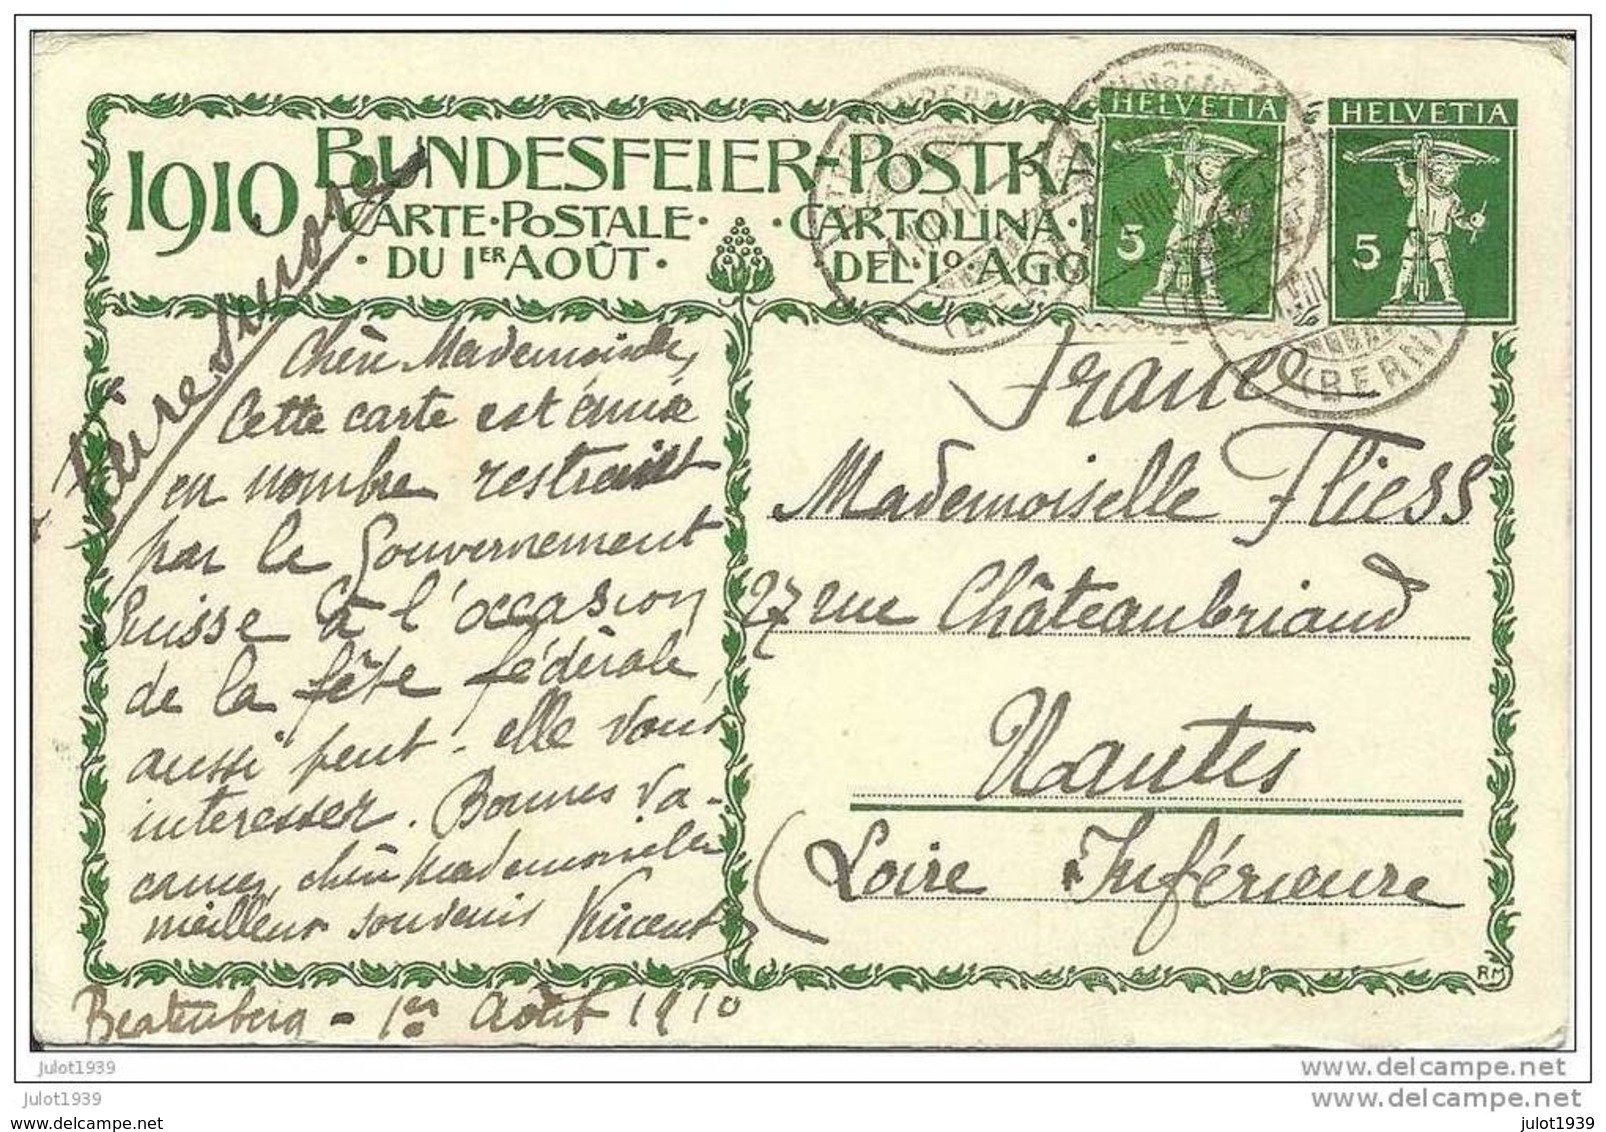 HELVETIA
HELVETIA
5
5
1910 BUNDESFEIER-POSTKA
CARTE·POSTALE · CARTOLINA·P
· DU 1ER AOÛT · DEL·1º·AGO
(BERN)
Faire suivre
Chère Mademoiselle,
Cette carte est émise
en nombre restreint
par le Gouvernement
Suisse à l'occasion
de la fête fédérale,
aussi peut-elle vous
intéresser. Bonnes va-
cances, chère Mademoiselle
meilleur souvenir Vincent
France
Mademoiselle Fliess
27 rue Châteaubriand
Nantes
(Loire Inférieure
RM
Beatenberg - 1er Août 1910
julot1939
julot1939
www.delcampe.net
www.delcampe.net
julot1939
julot1939